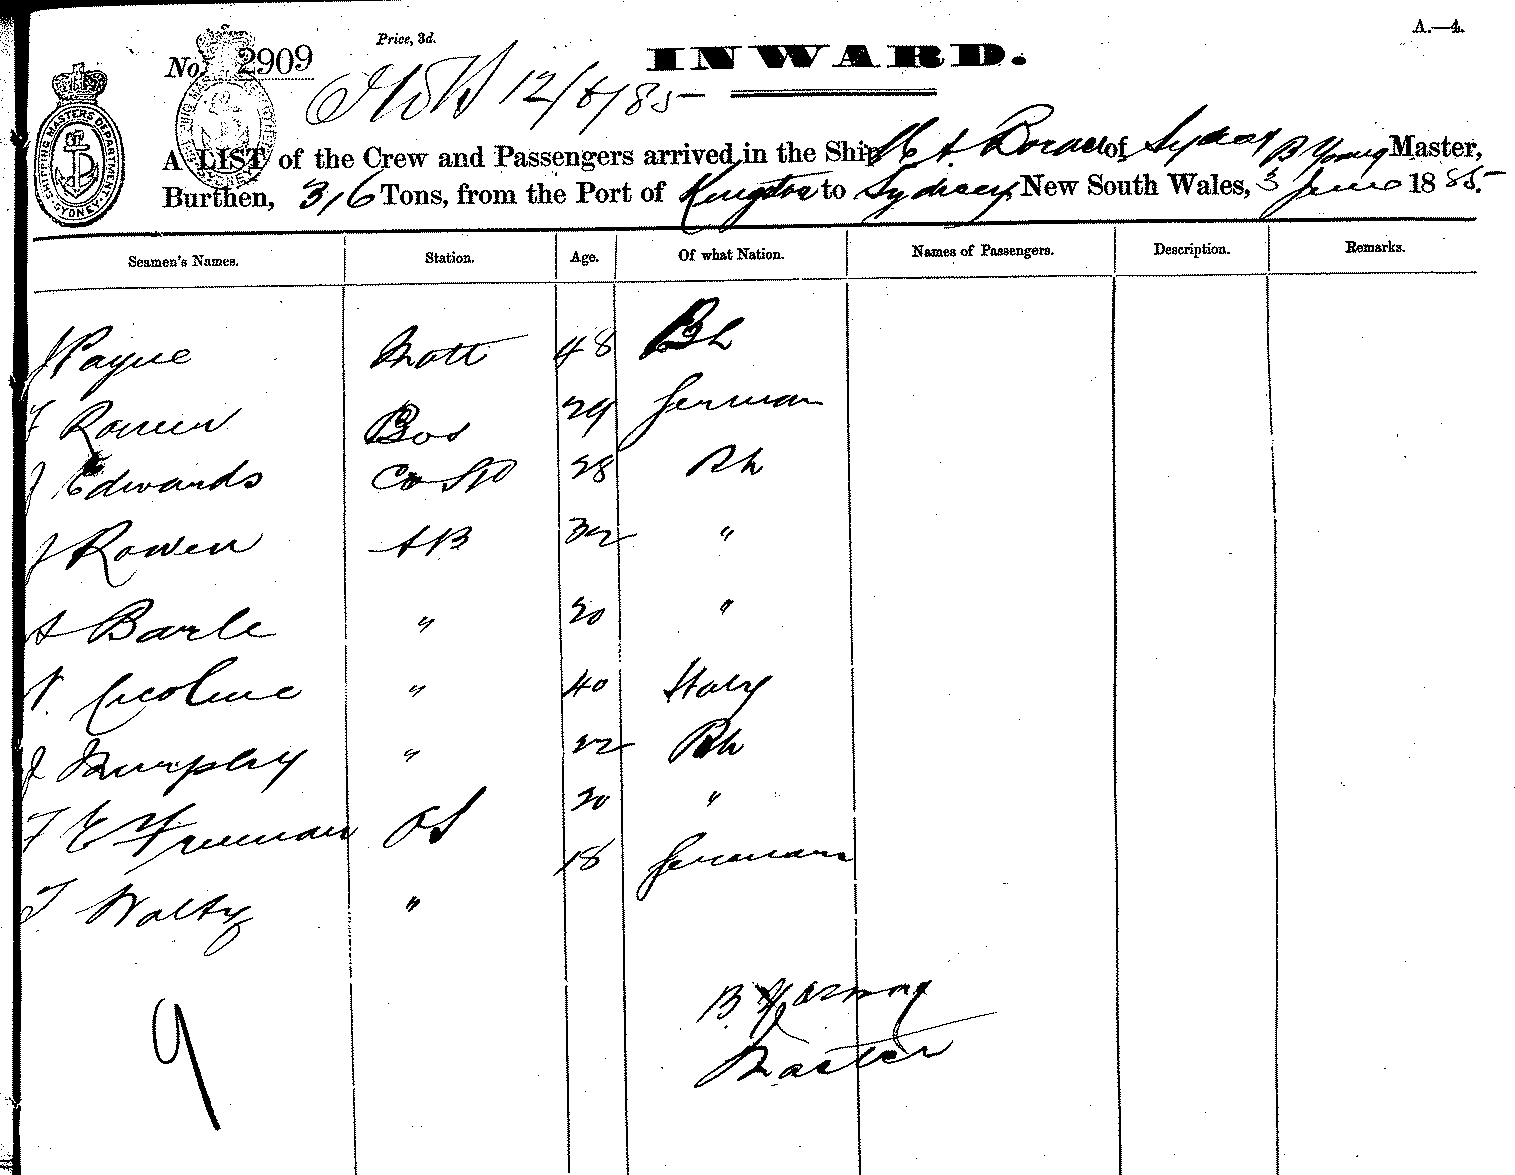 A.—4.
Price, 3d.
No. 2909
INWARD.
12/6/85
A LIST of the Crew and Passengers arrived in the Ship of Sydney B Young Master,
Burthen, 316 Tons, from the Port of Kingston to Sydney, New South Wales, 3 June 1885.
SHIPPING MASTERS DEPARTMENT SYDNEY
Seamen's Names. Station. Age. Of what Nation. Names of Passengers. Description. Remarks.
J Payne Matt 48 Bh
F Bos 29 German
J Edwards Co Std 28 Bh
J Rowen AB 32 "
A Barle " 20 "
N. " 40 Italy
J Murphy " 22 Bh
F E Freeman OS 20 "
F Waltz " 18 German
9
B. Young
Master